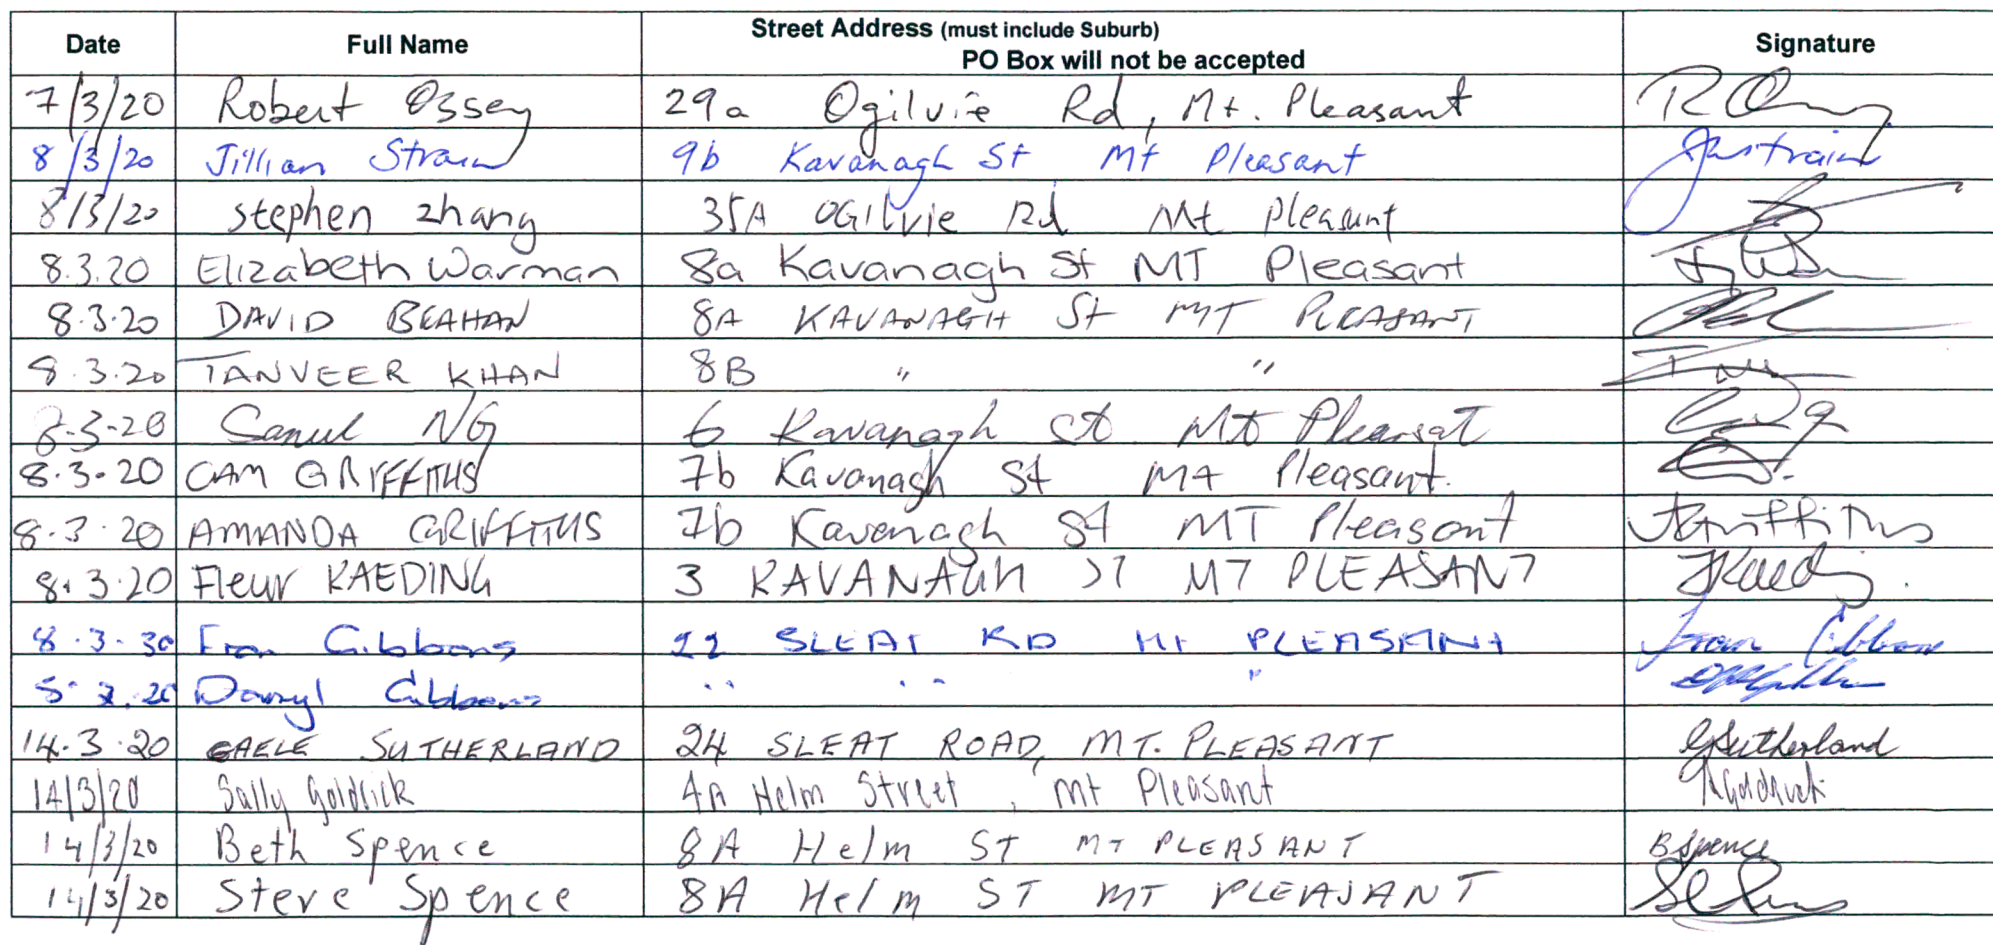 Date Full Name Street Address (must include Suburb) Signature
PO Box will not be accepted
7/3/20 Robert Ossey 29a Ogilvie Rd, Mt. Pleasant
8/3/20 Jillian Strain 9b Kavanagh St Mt Pleasant Jastrain
8/3/20 Stephen Zhang 35A OGilvie Rd Mt pleasant
8.3.20 Elizabeth Warman 8a Kavanagh St MT Pleasant
8.3.20 DAVID BEAHAN 8A KAVANAGH St MT PLEASANT
8.3.20 TANVEER KHAN 8B " "
8-3-20 NG 6 Kavanagh st Mt Pleansat
8.3.20 CAM GRIFFITHS 7b Kavanagh St Mt Pleasant.
8.3.20 AMANDA GRIFFITHS 7b Kavenagh St MT Pleasant AGriffiths
8.3.20 Fleur KAEDING 3 KAVANAGH ST MT PLEASANT
8.3.30 Fran Gibbons 22 SLEAT RD Mt PLEASANT Fran Gibbons
8.3.20 Darryl Gibbons " " "
14.3.20 GAELE SUTHERLAND 24 SLEAT ROAD, MT. PLEASANT GSutherland
14/3/20 Sally Goldrick 4A Helm Street, Mt Pleasant
14/3/20 Beth Spence 8A Helm ST MT PLEASANT B Spence
14/3/20 Steve Spence 8A Helm ST MT PLEASANT